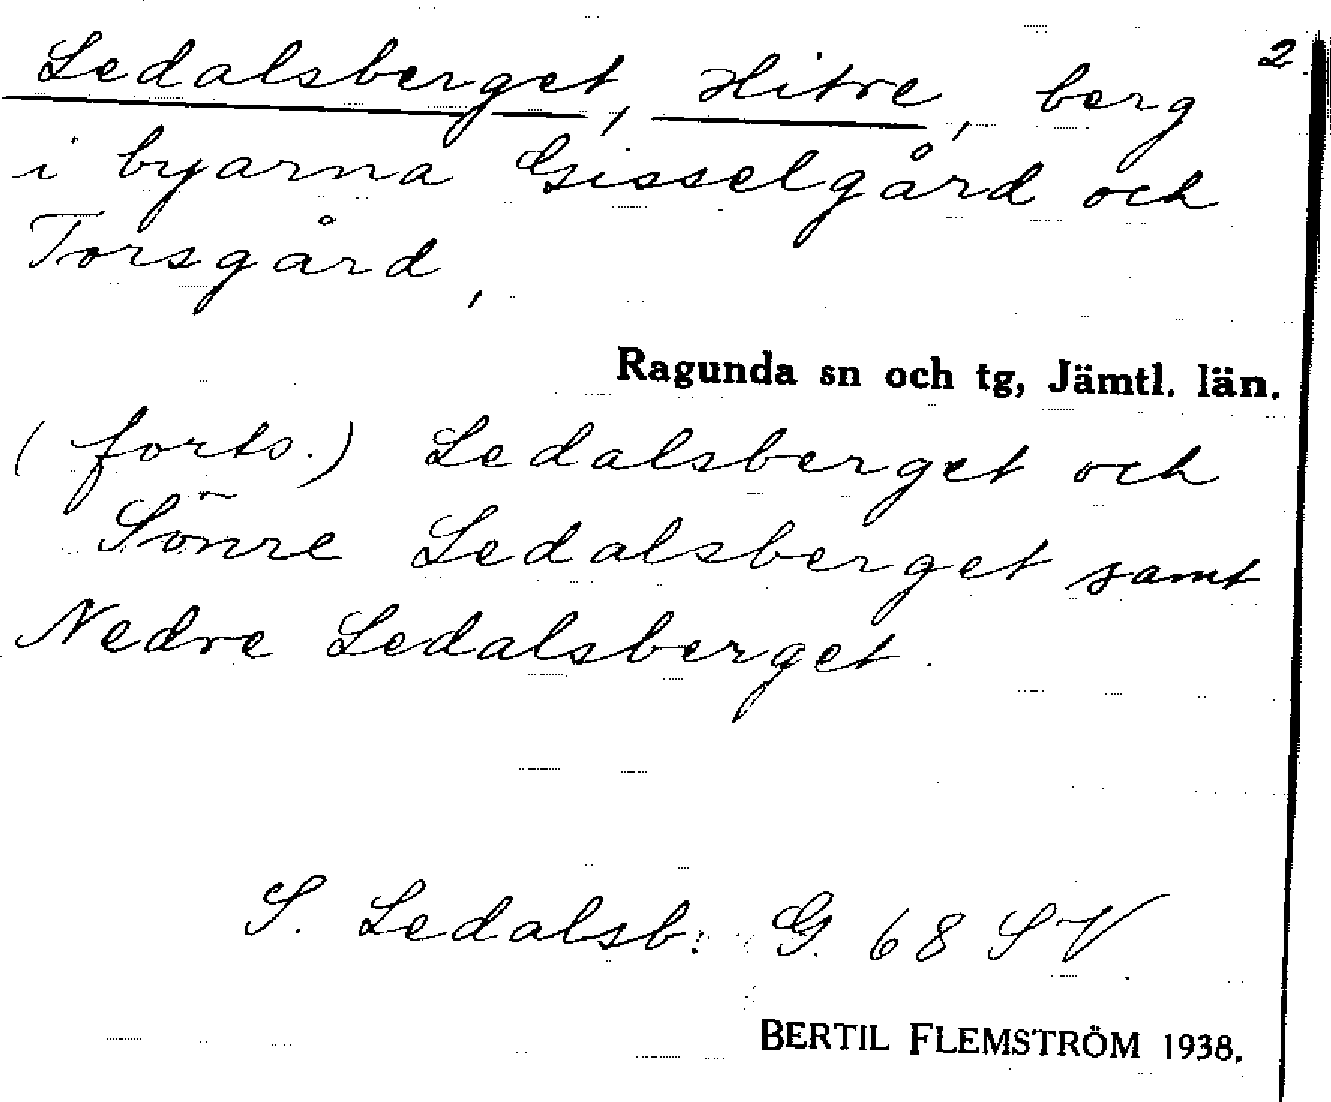 Ledalsberget, Hitre, berg 2.
i byarna Gisselgård och
Torsgård,
Ragunda sn och tg, Jämtl. län.
(forts.) Ledalsberget och
Sönre Ledalsberget samt
Nedre Ledalsberget.
S. Ledalsb: G. 68 SV
BERTIL FLEMSTRÖM 1938.